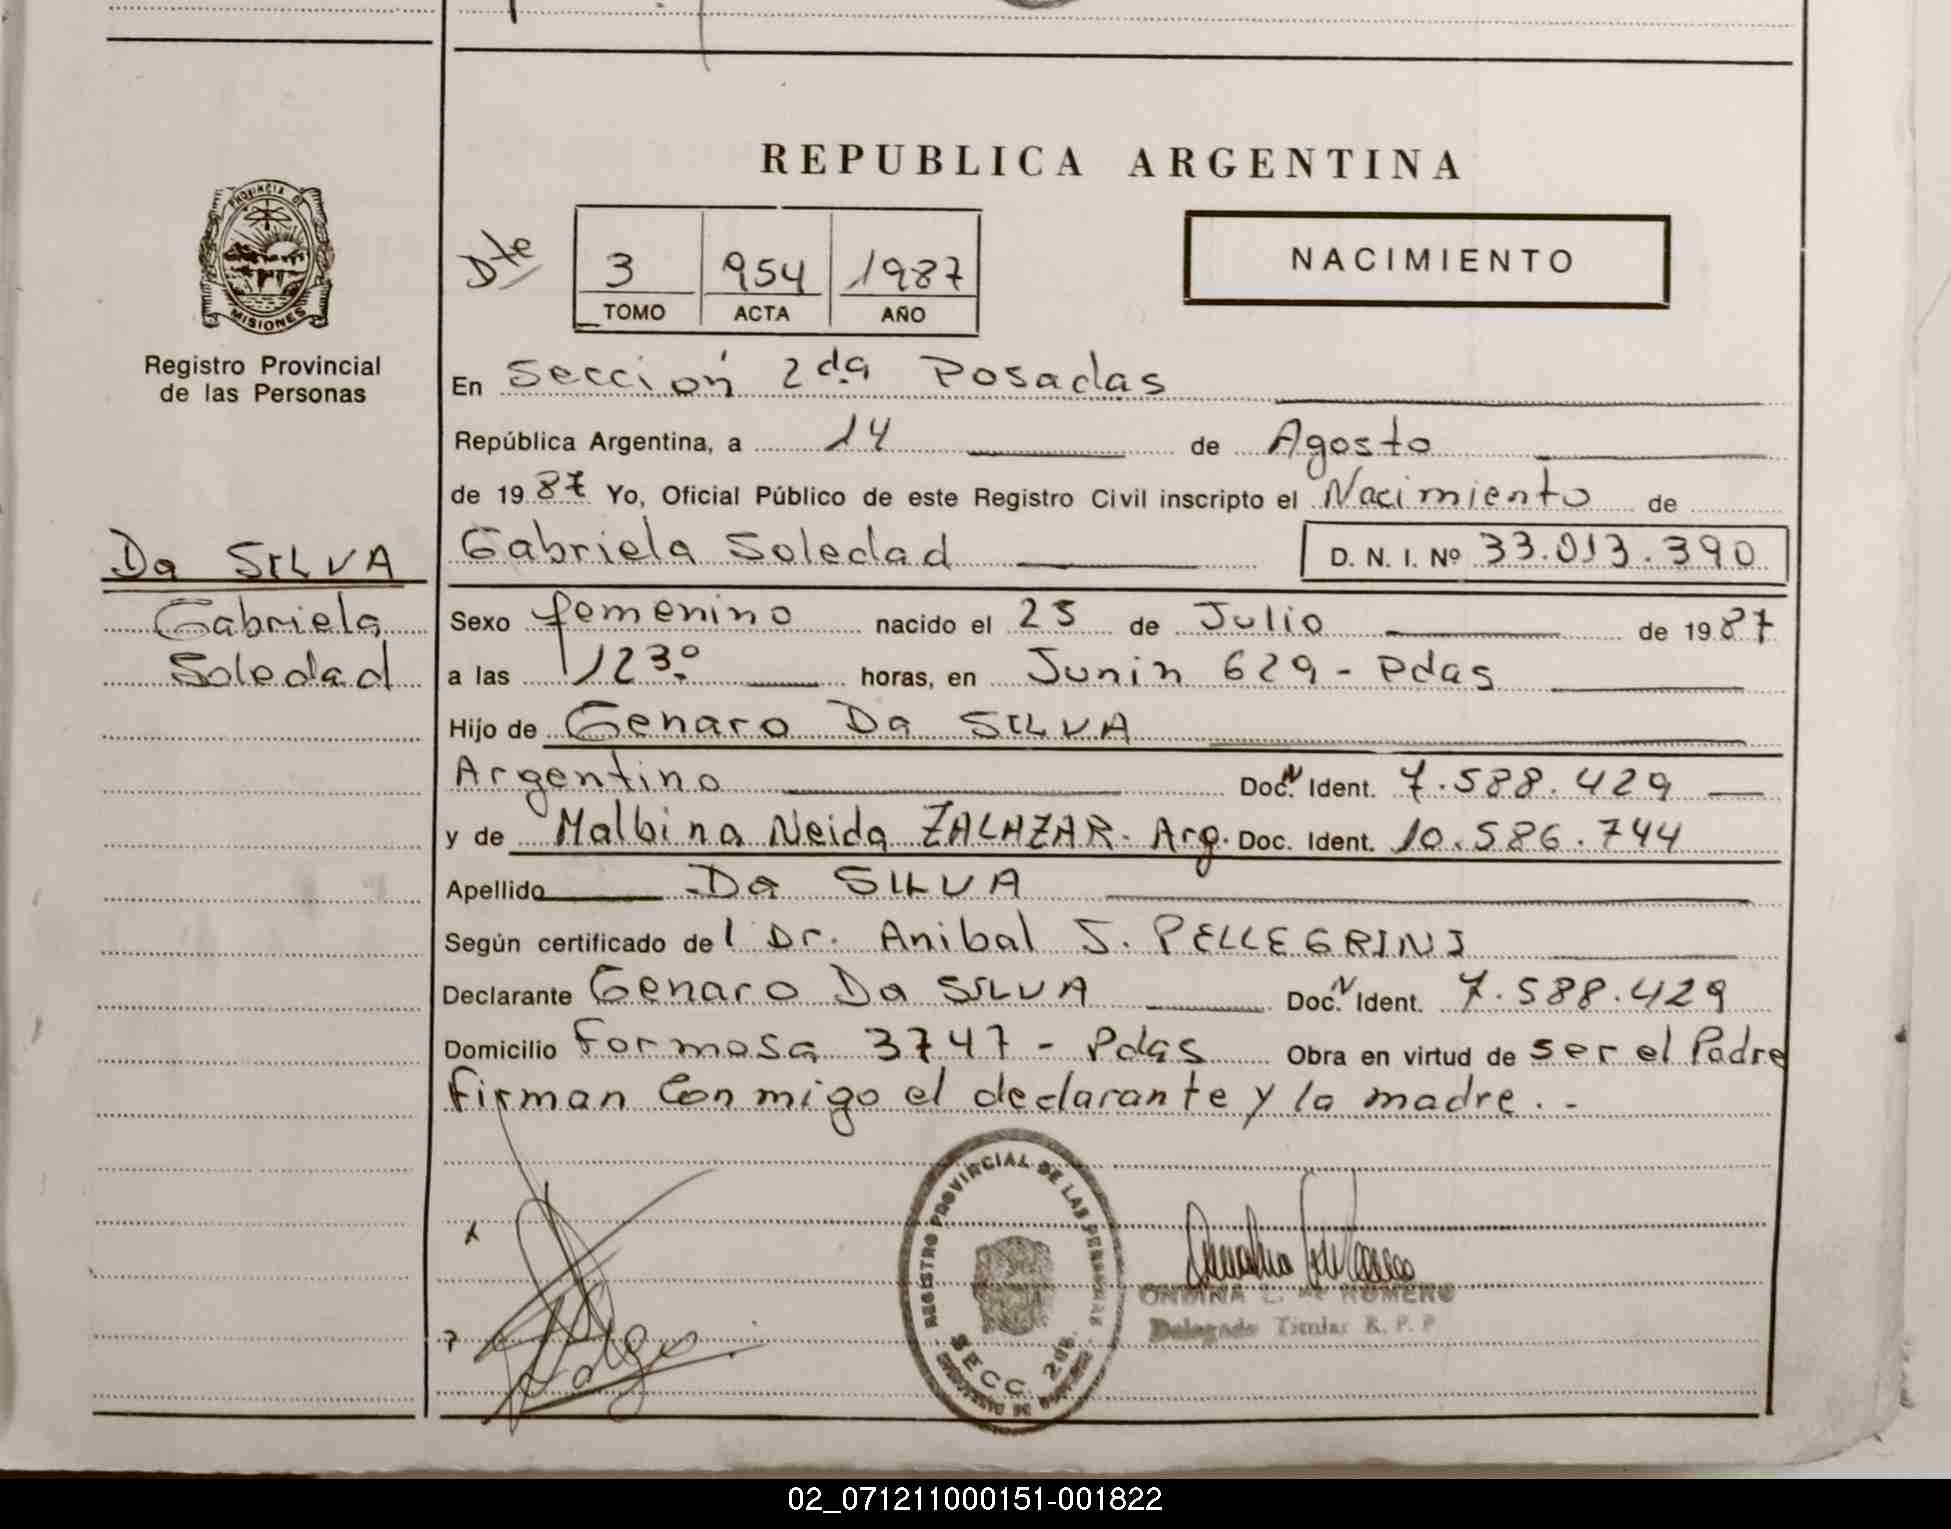 REPUBLICA ARGENTINA
PROVINCIA DE
MISIONES
Registro Provincial
de las Personas
Dte
3 954 1987
TOMO ACTA AÑO
NACIMIENTO
En Sección 2da Posadas
República Argentina, a 14 de Agosto
de 1987 Yo, Oficial Público de este Registro Civil inscripto el Nacimiento de
Gabriela Soledad D. N. I. Nº 33.013.390
Da SILVA
Gabriela
Soledad
Sexo femenino nacido el 25 de Julio de 1987
a las 1230 horas, en Junin 629 - Pdas
Hijo de Genaro Da SILVA
Argentino Doc. N Ident. 7.588.429
y de Malbina Neida ZALAZAR. Arg. Doc. Ident. 10.586.744
Apellido Da SILVA
Según certificado del Dr. Anibal S. PELLEGRINI
Declarante Genaro Da SILVA Doc. N Ident. 7.588.429
Domicilio Formosa 3747 - Pdas Obra en virtud de ser el Padre
firman conmigo el declarante y la madre. -
REGISTRO PROVINCIAL DE LAS PERSONAS
SECC. 2da.
ONDINA L. de ROMERO
Delegado Titular R. P. P.
02_071211000151-001822